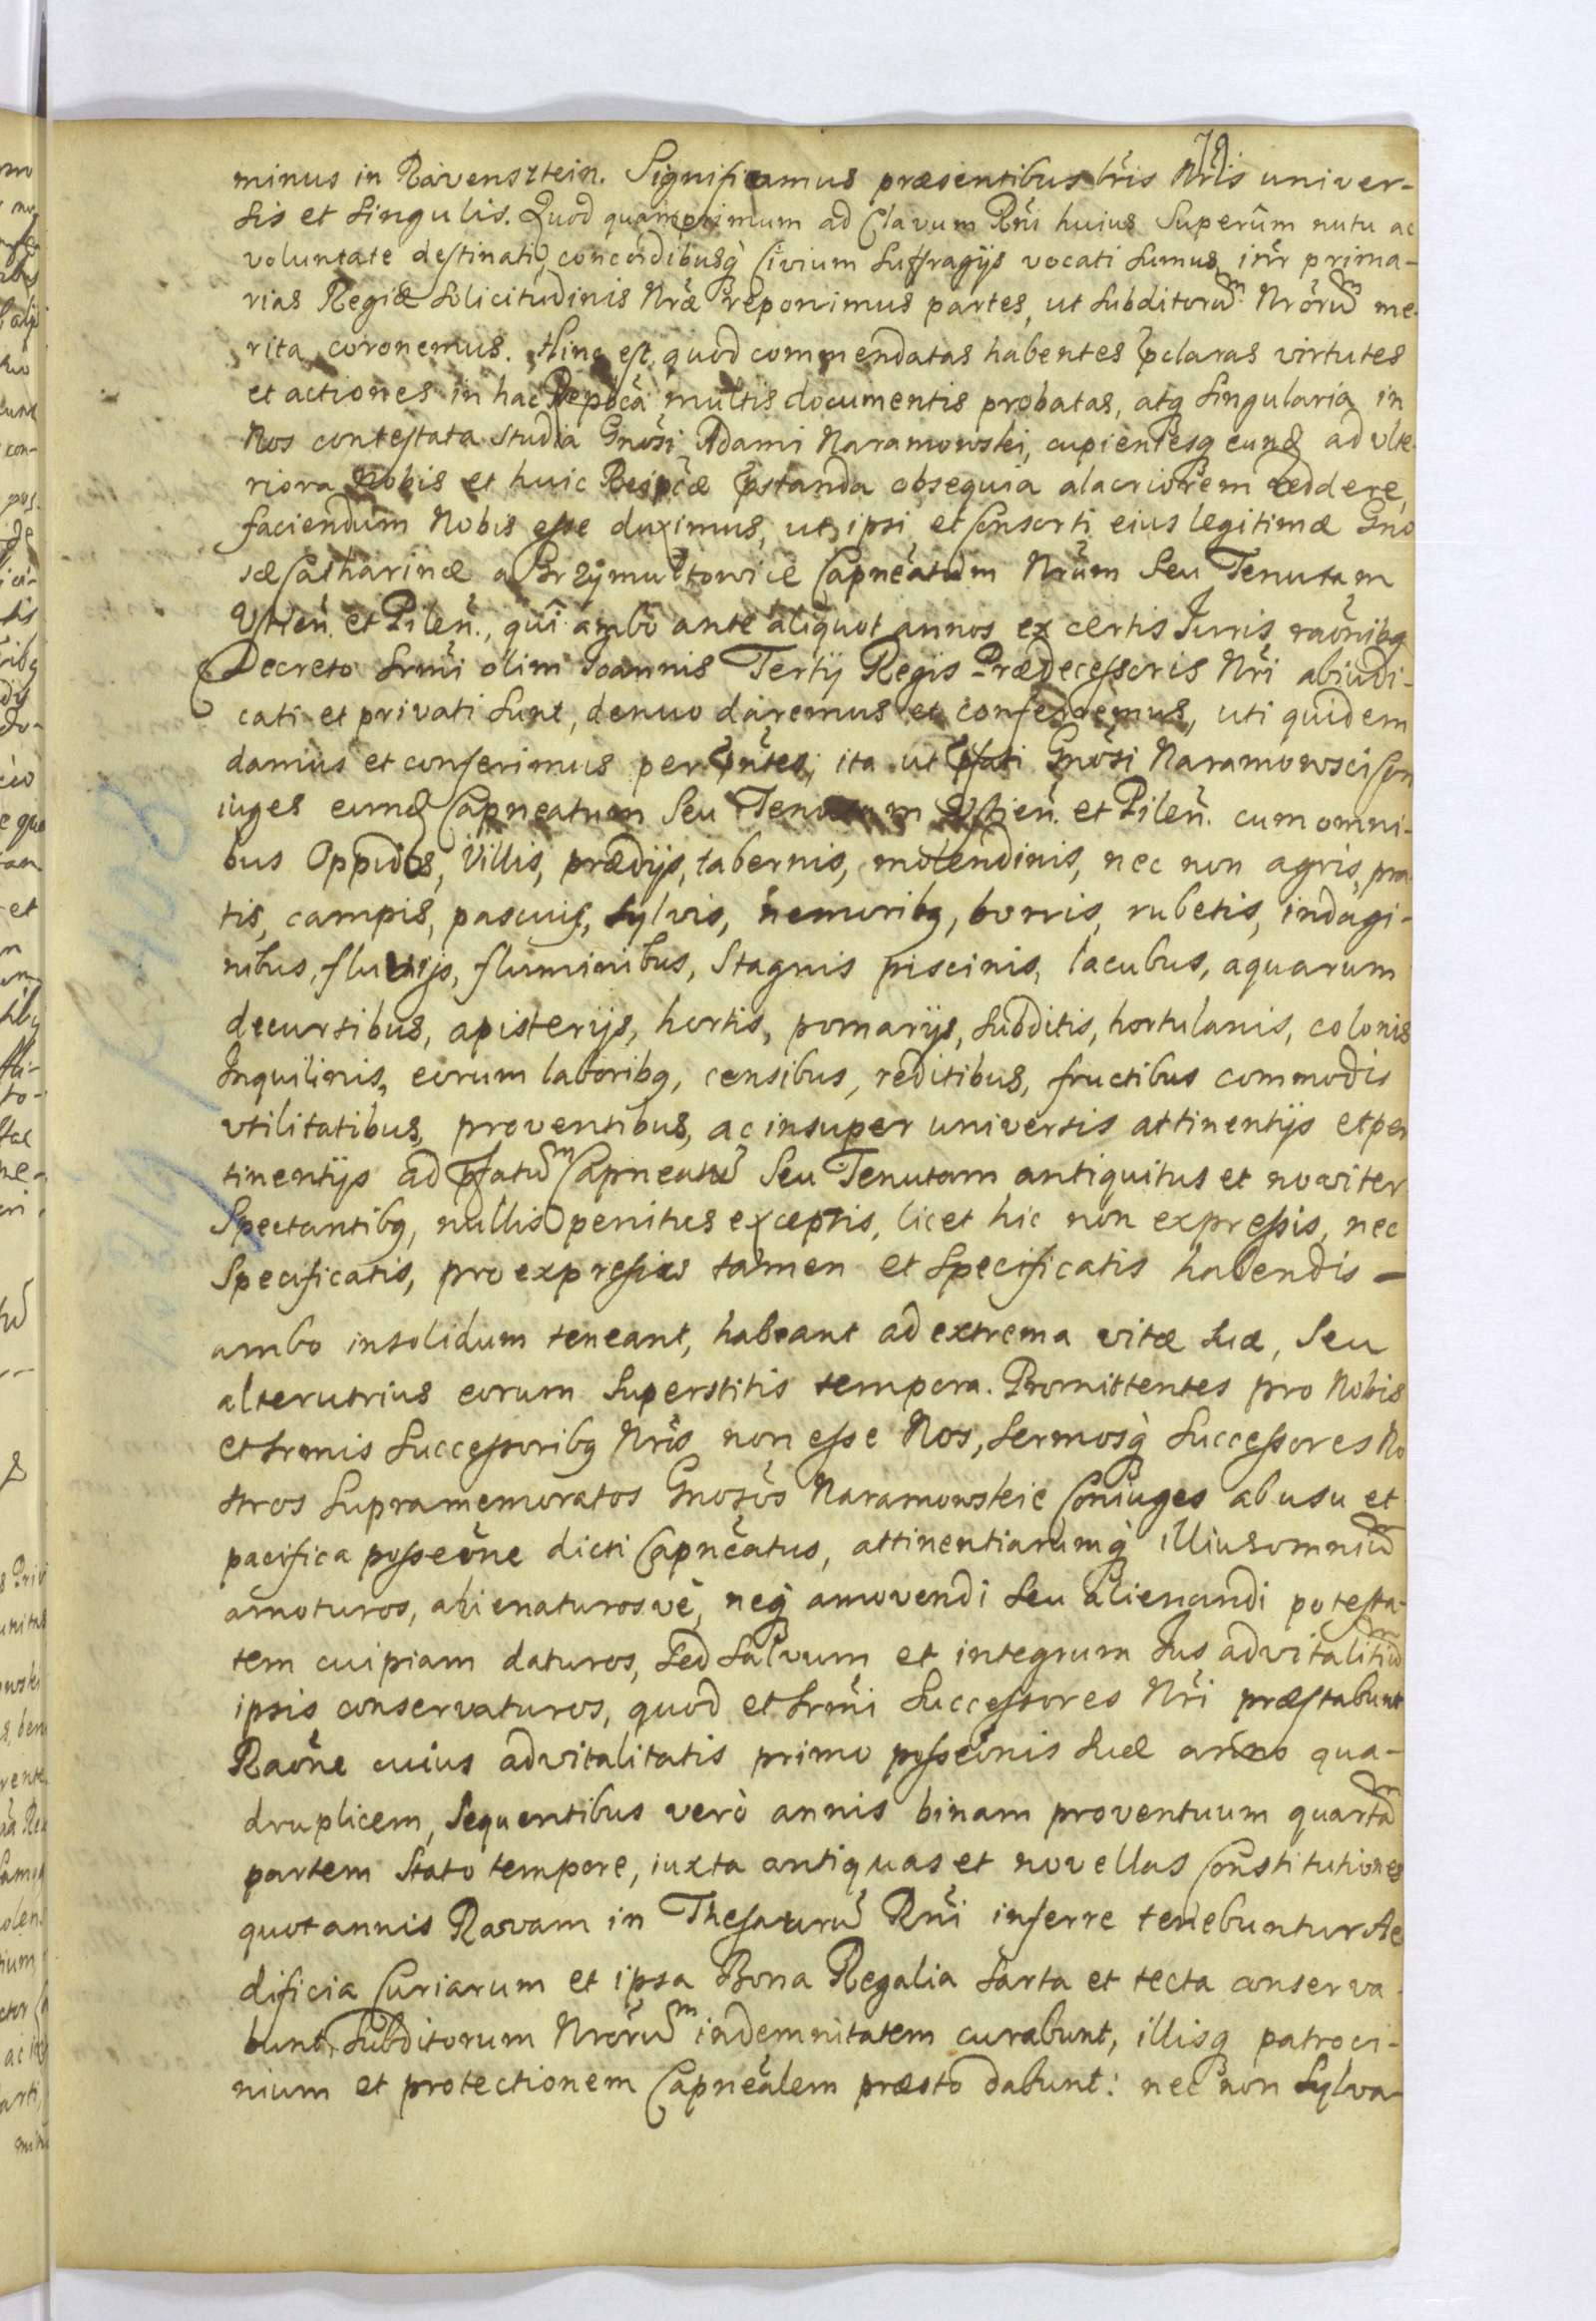 19
minus in Ravensztein. Significamus præsentibus lr̃is Nr̃is univer-
sis et singulis. Quod quamprimum ad Clavum Rñi huius Superûm nutu ac
voluntate destinati, concordibusq̀ Civium suffragijs vocati sumus, inr̃ prima-
rias Regiæ solicitudinis Nr̃æ reponimus partes, ut subditorũm Nrõrũm me-
rita coronemus. Hinc est, quod commendatas habentes p̃claras virtutes
et actiones in hac Repb̃ca multis documentis probatas, atq singularia in
Nos contestata studia Gnõsi Adami Naramowski, cupientesq eund ad vlte-
riora Nobis et huic Reip̃cæ p̃standa obsequia alacriorem reddere,
faciendum Nobis esse duximus, ut ipsi et Consorti eius legitimæ Gno
sæ Catharinæ a Grzymułtowice Capneãtum Nr̃um seu Tenutam
Vstien̈. et Pilen̈., quî ambo ante aliquot annos ex certis Iuris raõnibq
Decreto Srm̃i olim Ioannis Tertij Regis Prædecessoris Nr̃i abiudi-
cati et privati sunt, denuo daremus et conferremus, uti quidem
damus et conferimus per p̃ñtes; ita ut p̃fati Gnõsi Naramowsci Con
iuges eund Capneatum seu Tenutam Vstien̈. et Pilen̈. cum omni-
bus Oppidis, Villis, prædijs, tabernis, molendinis, nec non agris, pra
tis, campis, pascuis, sylvis, nemoribq, borris, rubetis, indagi-
nibus, fluvijs, fluminibus, stagnis piscinis, lacubus, aquarum
decursibus, apisterijs, hortis, pomarijs, subditis, hortulanis, colonis
Inquilinis, eorum laboribq, censibus, reditibus, fructibus commodis
vtilitatibus, proventibus, ac insuper universis attinentijs et per
tinentijs ad p̃fatũm Capneatũ seu Tenutam antiquitus et noviter
Spectantibq, nullis penitus exceptis, licet hic non expressis, nec
Specificatis, pro expressis tamen et specificatis habendis -
ambo insolidum teneant, habeant ad extrema vitæ suæ, seu
alterutrius eorum superstitis tempora. Promittentes pro Nobis
et Srmis Successoribq Nr̃is non esse Nos, Sermosq̀ Successores No
stros supramemoratos Gnosõs Naramowskie Coniuges ab usu et
pacifica posseõne dicti Capnẽatus, attinentiarumq̀ illius omniũm
amoturos, alienaturosvè, neq̀ amovendi seu alienandi potesta-
tem cuipiam daturos, sed salvum et integrum Ius advitalitiũm
ipsis conservaturos, quod et Srm̃i Successores Nr̃i præstabunt
Raõne cuius advitalitatis primo posseõnis suæ anno qua-
druplicem, sequentibus verò annis binam proventuum quartãm
partem stato tempore, iuxta antiquas et novellas Constitutiones
quotannis Ravam in Thesaurũ Rñi inferre tenebuntur Ae
dificia Curiarum et ipsa Bona Regalia sarta et tecta conserva-
bunt, subditorum Nrorũm indemnitatem curabunt, illisq patroci-
nium et protectionem Capneãlem præsto dabunt: nec non Sylva-